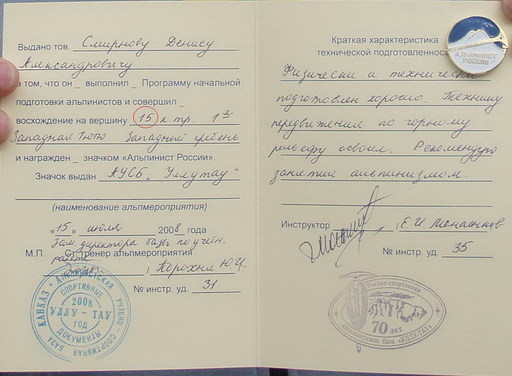 Выдано тов. Смирнову Денису
Александровичу
в том, что он выполнил Программу начальной
подготовки альпинистов и совершил
восхождение на вершину 15 к.тр.
Западная Тютю Западный гребень
и награжден значком «Альпинист России».
Значок выдан АУСБ "Уллутау"
(наименование альпмероприятия)
«15» июля 2008 года
Зам директора базы по учебн.
работе
М.П. Ст. тренер альпмероприятия
№ инстр. уд. 31
КАВКАЗ АЛЬПИНИСТСКАЯ УЧЕБНО-СПОРТИВНАЯ БАЗА
СПОРТИВНЫЕ
2008
УЛЛУ-ТАУ
ГОД
ДОКУМЕНТЫ
Краткая характеристика
технической подготовленнос
АЛЬПИНИСТ
РОССИИ
Физически и технически
подготовлен хорошо. Технику
передвижения по горному
рельефу освоил. Рекомендую
занятие альпинизмом.
Инструктор
№ инстр. уд. 35
70 лет